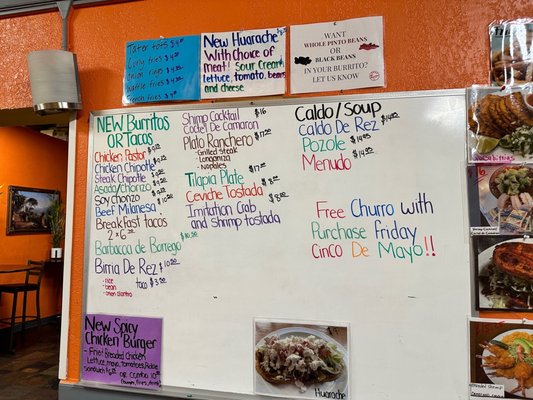 Tater tots $4
Curly fries $4
Onion rings $4
Waffle fries $4
French fries $4
New Huarache $8
With Choice of
meat! Sour Cream
lettuce, tomato, beans
WANT
WHOLE PINTO BEANS
OR
BLACK BEANS
IN YOUR BURRITO?
LET US KNOW
NEW Burritos
OR Tacos
Chicken Pastor
Chicken Chipotle
Steak Chipotle
Asada/Chorizo
Soy chorizo
Beef Milanesa
Breakfast tacos
2 x 6
Barbacoa de Borrego
Birria De Rez $10
- rice
- bean
- onion cilantro
taco $3
Shrimp Cocktail $16
Coctel De Camaron
Plato Ranchero $17
- Grilled steak
- Longaniza
- Nopales
Tilapia Plate $17
Ceviche Tostada $8
Imitation Crab $8
and Shrimp tostada
Caldo/Soup
Caldo De Rez
Pozole
Menudo
Free Churro with
Purchase Friday
Cinco De Mayo!!
New Spicy
Chicken Burger
- Fried Breaded Chicken
Lettuce, mayo, tomatoes, Pickle
Sandwich $6 OR Combo
Huarache